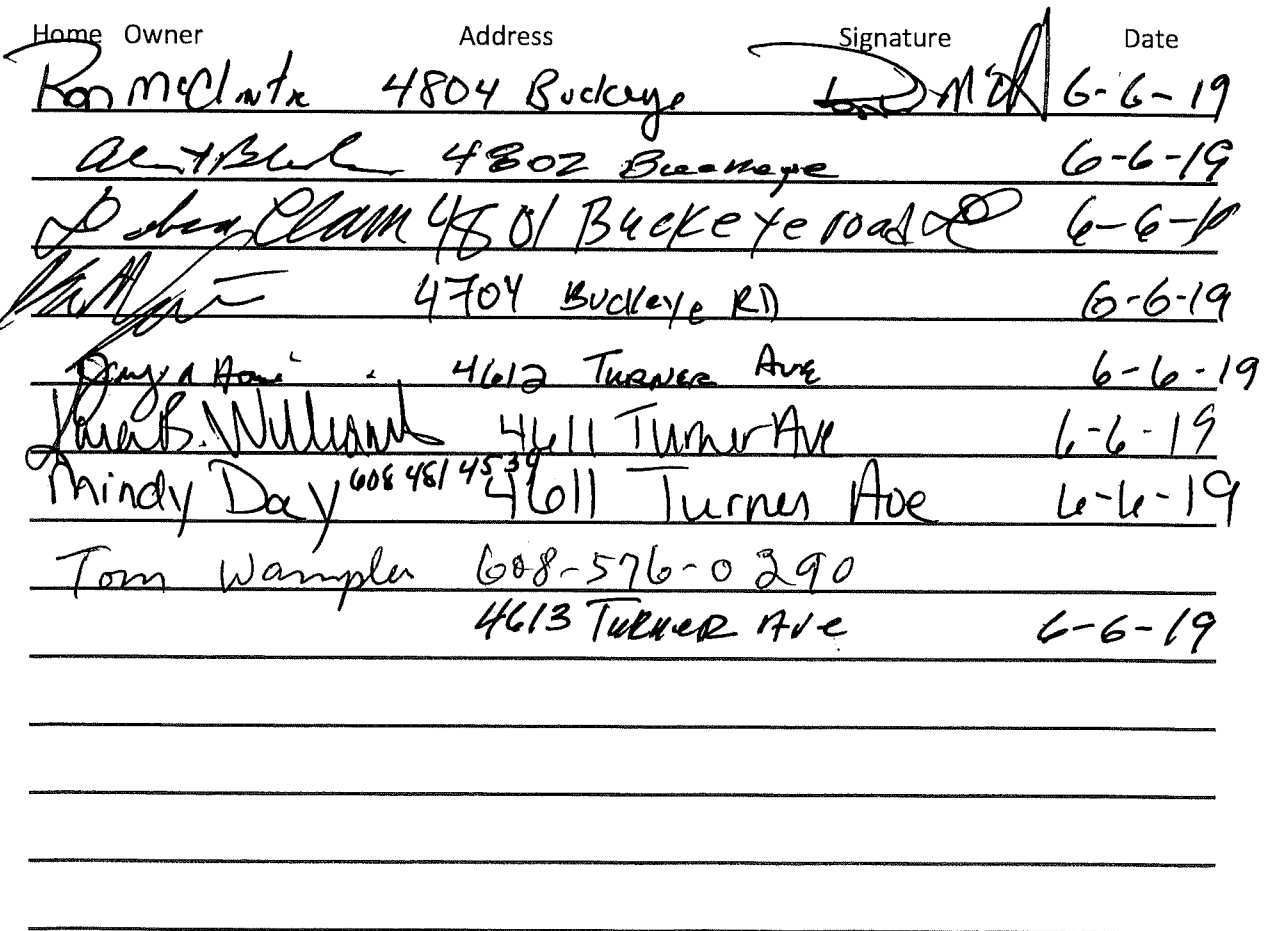 Home Owner Address Signature Date
Ron McClintx 4804 Buckeye 6-6-19
4802 Buckeye 6-6-19
4801 Buckeye road 6-6-19
4704 Buckeye RD 6-6-19
4612 TURNER AVE 6-6-19
B. Williams 4611 Turner Ave 6-6-19
Mindy Day 608 481 4539 4611 Turner Ave 6-6-19
Tom Wampler 608-576-0290
4613 TURNER Ave 6-6-19